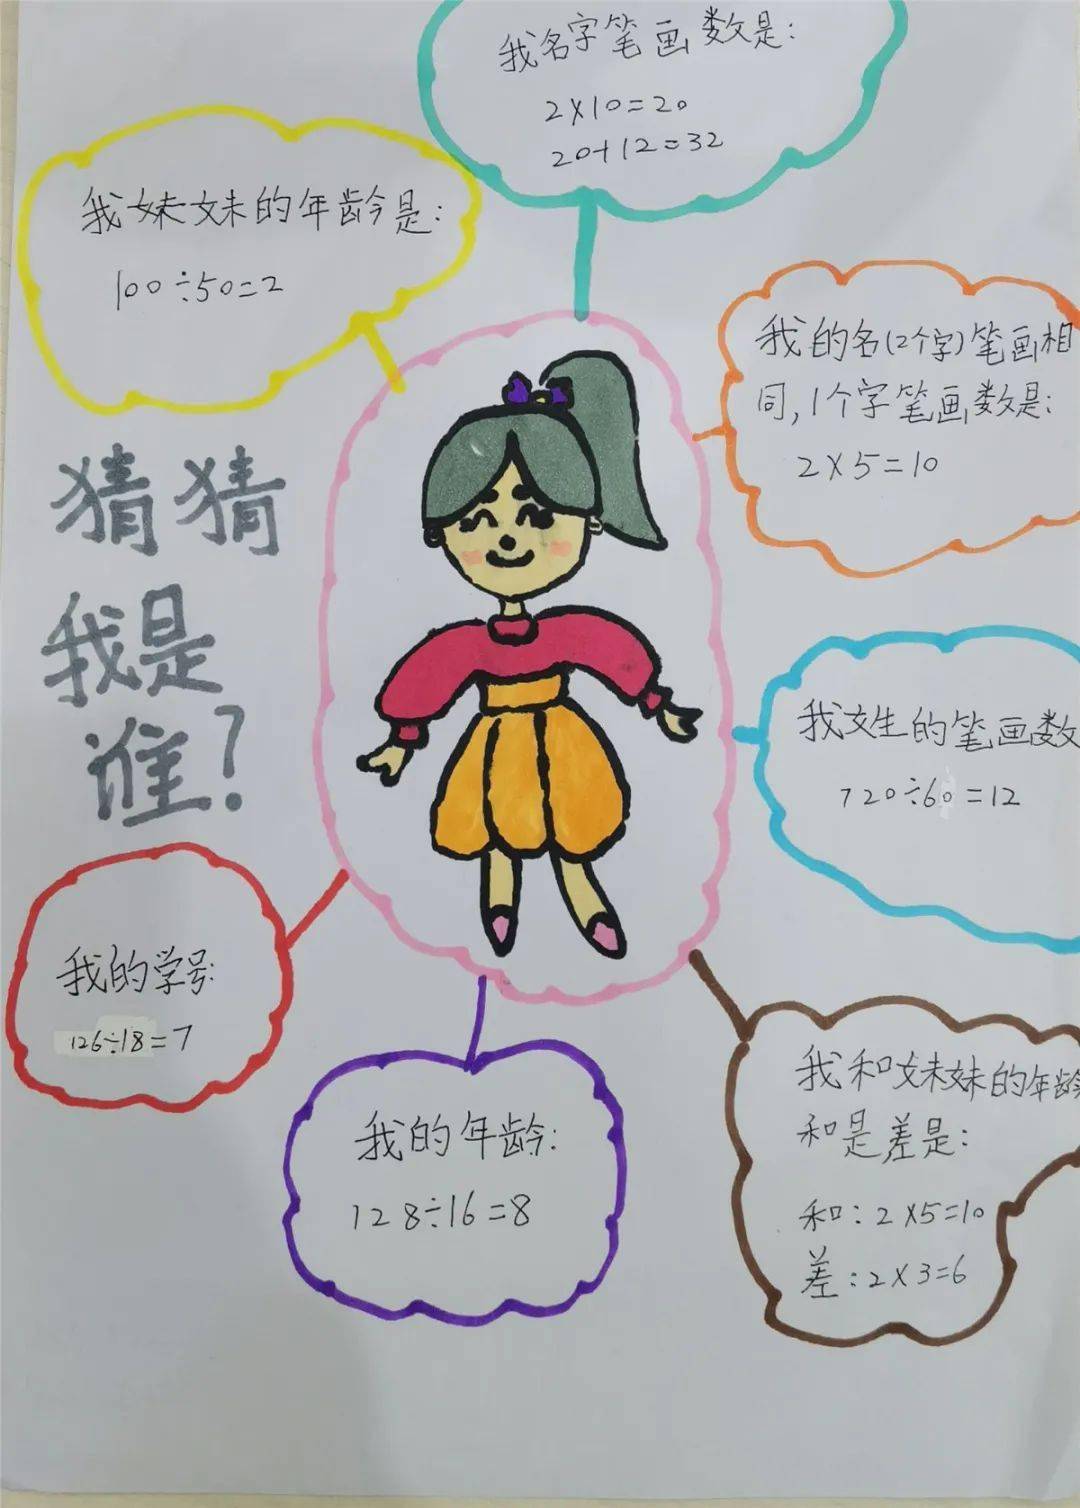 我名字笔画数是:
2×10=20
20+12=32
我妹妹的年龄是:
100÷50=2
我的名(2个字)笔画相
同,1个字笔画数是:
2×5=10
猜猜
我是
谁?
我姓的笔画数
720÷60=12
我的学号:
126÷18=7
我的年龄:
128÷16=8
我和妹妹的年龄
和是差是:
和:2×5=10
差:2×3=6